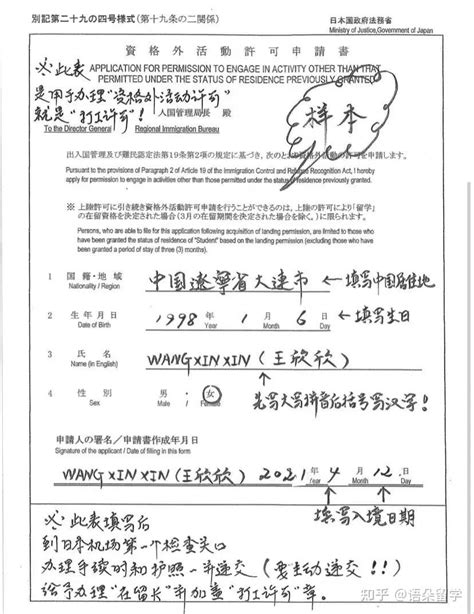 別記第二十九の四号様式(第十九条の二関係)
日本国政府法務省
Ministry of Justice,Government of Japan
資格外活動許可申請書
※此表
APPLICATION FOR PERMISSION TO ENGAGE IN ACTIVITY OTHER THAN THAT
PERMITTED UNDER THE STATUS OF RESIDENCE PREVIOUSLY GRANTED
是用于办理"资格外活动许可"
就是"打工许可"!
入国管理局長 殿
样本
To the Director General Regional Immigration Bureau
出入国管理及び難民認定法第19条第2項の規定に基づき,次のとおり資格外活動の許可を申請します。
Pursuant to the provisions of Paragraph 2 of Article 19 of the Immigration Control and Refugee Recognition Act, I hereby
apply for permission to engage in activities other than those permitted under the status of residence previously granted.
※ 上陸許可に引き続き資格外活動許可申請を行うことができるのは,上陸の許可により「留学」
の在留資格を決定された場合(3月の在留期間を決定された場合を除く。)に限られます。
Persons, who are able to file for this application following acquisition of landing permission, are limited to those who
have been granted the status of residence of "Student" based on the landing permission (excluding those who have
been granted a period of stay of three (3) months).
1 国籍・地域 中国遼寧省大連市 ← 填写中国居住地
Nationality / Region
2 生年月日 1998 年 1 月 6 日 ← 填写生日
Date of Birth Year Month Day
3 氏名 WANG XIN XIN (王欣欣)
Name (in English)
4 性別 男 ・ 女
Sex Male / Female
先写大写拼音后括号写汉字!
申請人の署名/申請書作成年月日
Signature of the applicant / Date of filling in this form
WANG XIN XIN (王欣欣) 2021 年 4 月 12 日
Year Month Day
填写入境日期
※ 此表填写后
到日本机场第一个检查关口
办理手续时和护照一并递交 (要主动递交!!)
给予办理"在留卡"并加盖"打工许可"章。
知乎 @语朵留学